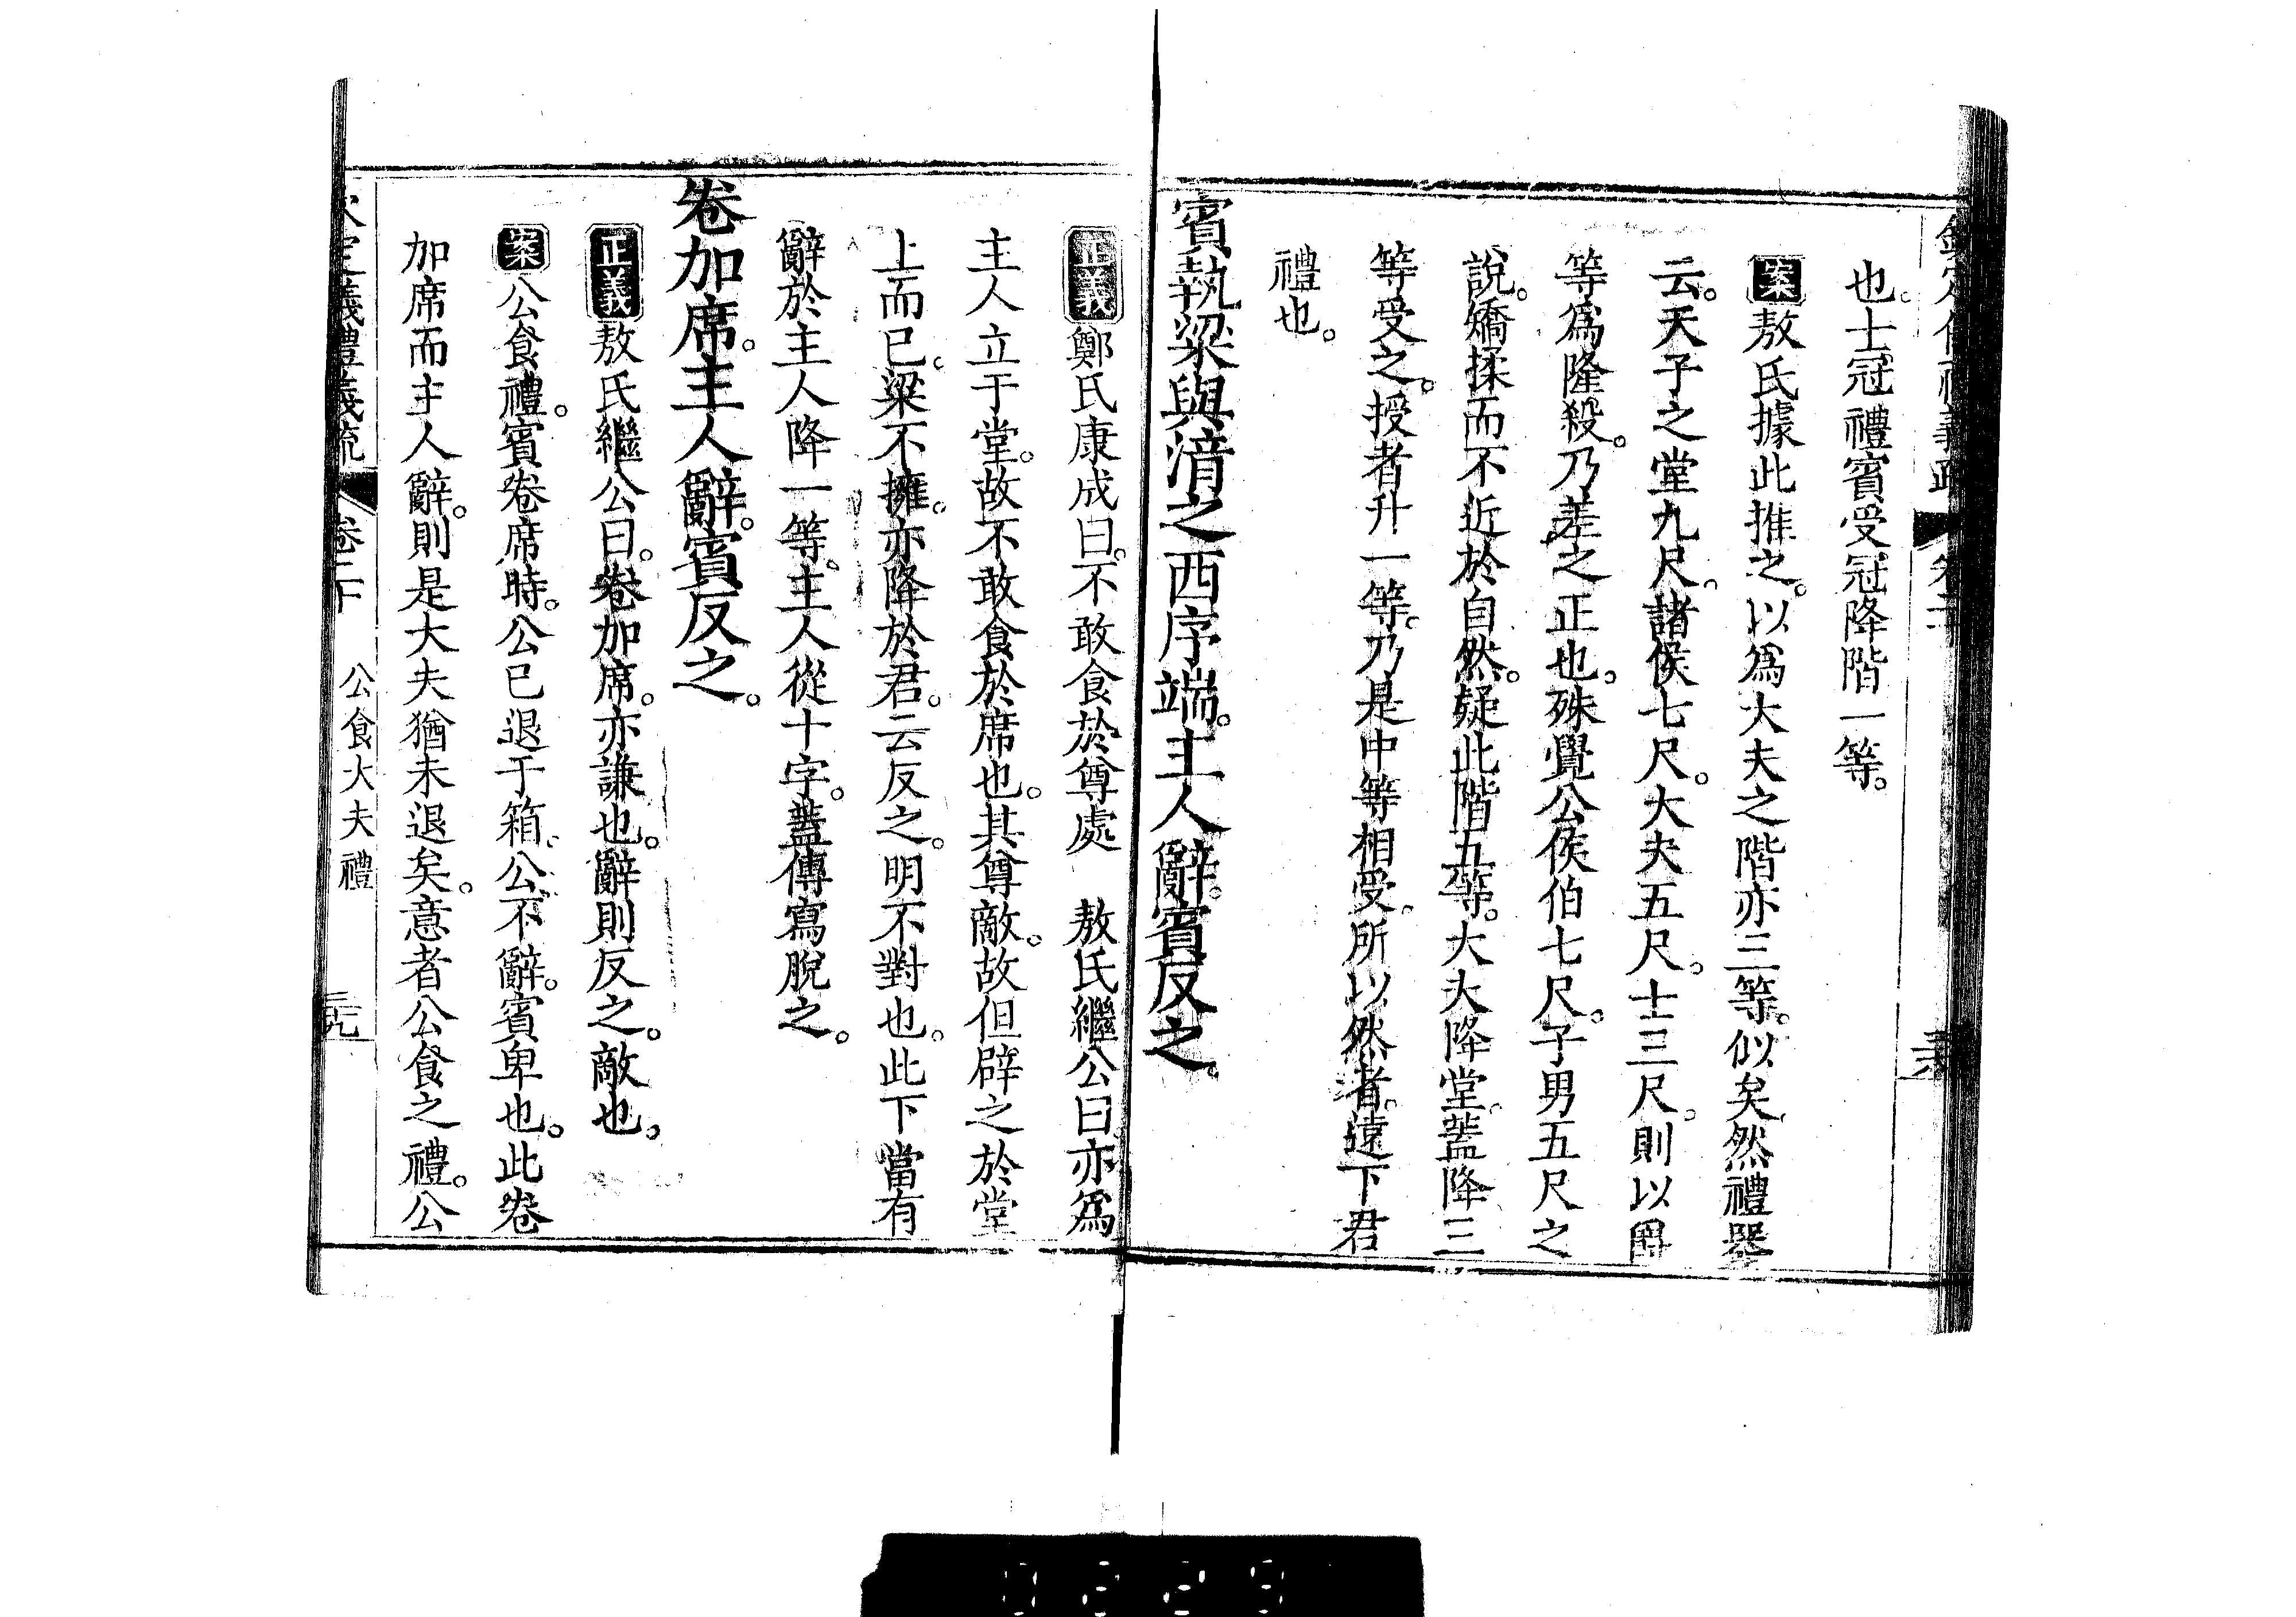 也。士冠禮賓受冠降階一等。
案敖氏據此推之。以爲大夫之階亦三等。似矣。然禮器
云。天子之堂九尺。諸侯七尺。大夫五尺。士三尺。則以爵
等爲隆殺。乃差之正也。殊覺公侯伯七尺。子男五尺之
說。矯揉而不近於自然。疑此階五等。大夫降堂。蓋降三
等受之。授者升一等。乃是中等相受。所以然者。遠下君
禮也。
賓執粱與湇之西序端。主人辭。賓反之。
正義鄭氏康成曰。不敢食於尊處 敖氏繼公曰。亦爲
主人立于堂。故不敢食於席也。其尊敵。故但辟之於堂
上而已。粱不擁。亦降於君。云反之。明不對也。此下當有
辭於主人降一等。主人從十字。蓋傳寫脫之。
卷加席。主人辭。賓反之。
正義敖氏繼公曰。卷加席。亦謙也。辭則反之。敵也。
案公食禮。賓卷席時。公已退于箱。公不辭。賓卑也。此卷
加席而主人辭。則是大夫猶未退矣。意者公食之禮。公
欽定儀禮義疏 卷二十 公食大夫禮